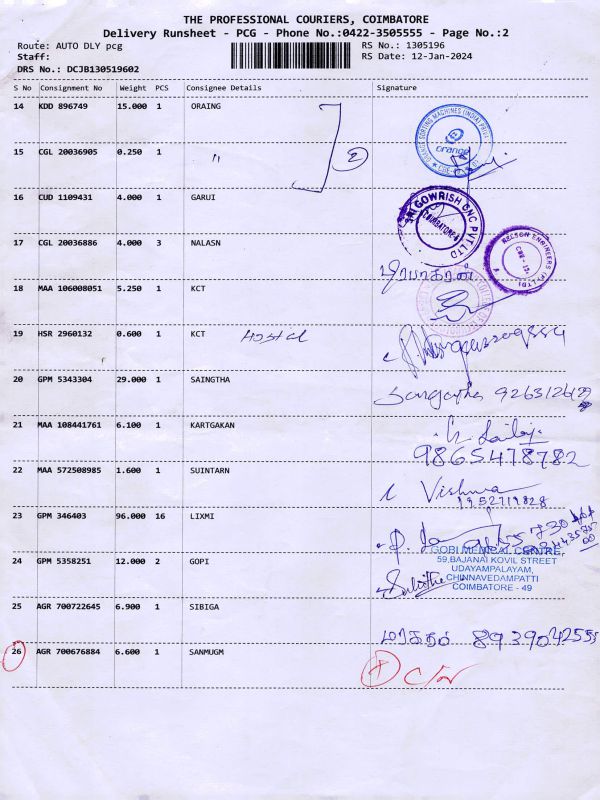 THE PROFESSIONAL COURIERS, COIMBATORE
Delivery Runsheet - PCG - Phone No.:0422-3505555 - Page No.:2
Route: AUTO DLY pcg RS No.: 1305196
Staff: RS Date: 12-Jan-2024
DRS No.: DCJB130519602
S No Consignment No Weight PCS Consignee Details Signature
14 KDD 896749 15.000 1 ORAING
15 CGL 20036905 0.250 1 " 2
orange
16 CUD 1109431 4.000 1 GARUI
SRI GOWRISH CNC PVT LTD
COIMBATORE
17 CGL 20036886 4.000 3 NALASN
NELSON ENGINEERS (P) LTD
18 MAA 106008051 5.250 1 KCT
பிரபாகரன்
19 HSR 2960132 0.600 1 KCT Hostel
20 GPM 5343304 29.000 1 SAINGTHA
Sangeetha
21 MAA 108441761 6.100 1 KARTGAKAN
9865478782
22 MAA 572508985 1.600 1 SUINTARN
Vishwa
23 GPM 346403 96.000 16 LIXMI
24 GPM 5358251 12.000 2 GOPI
GOBI MEDICAL CENTRE,
59,BAJANAI KOVIL STREET
UDAYAMPALAYAM,
CHINNAVEDAMPATTI
COIMBATORE - 49
25 AGR 700722645 6.900 1 SIBIGA
8939042555
26 AGR 700676884 6.600 1 SANMUGM